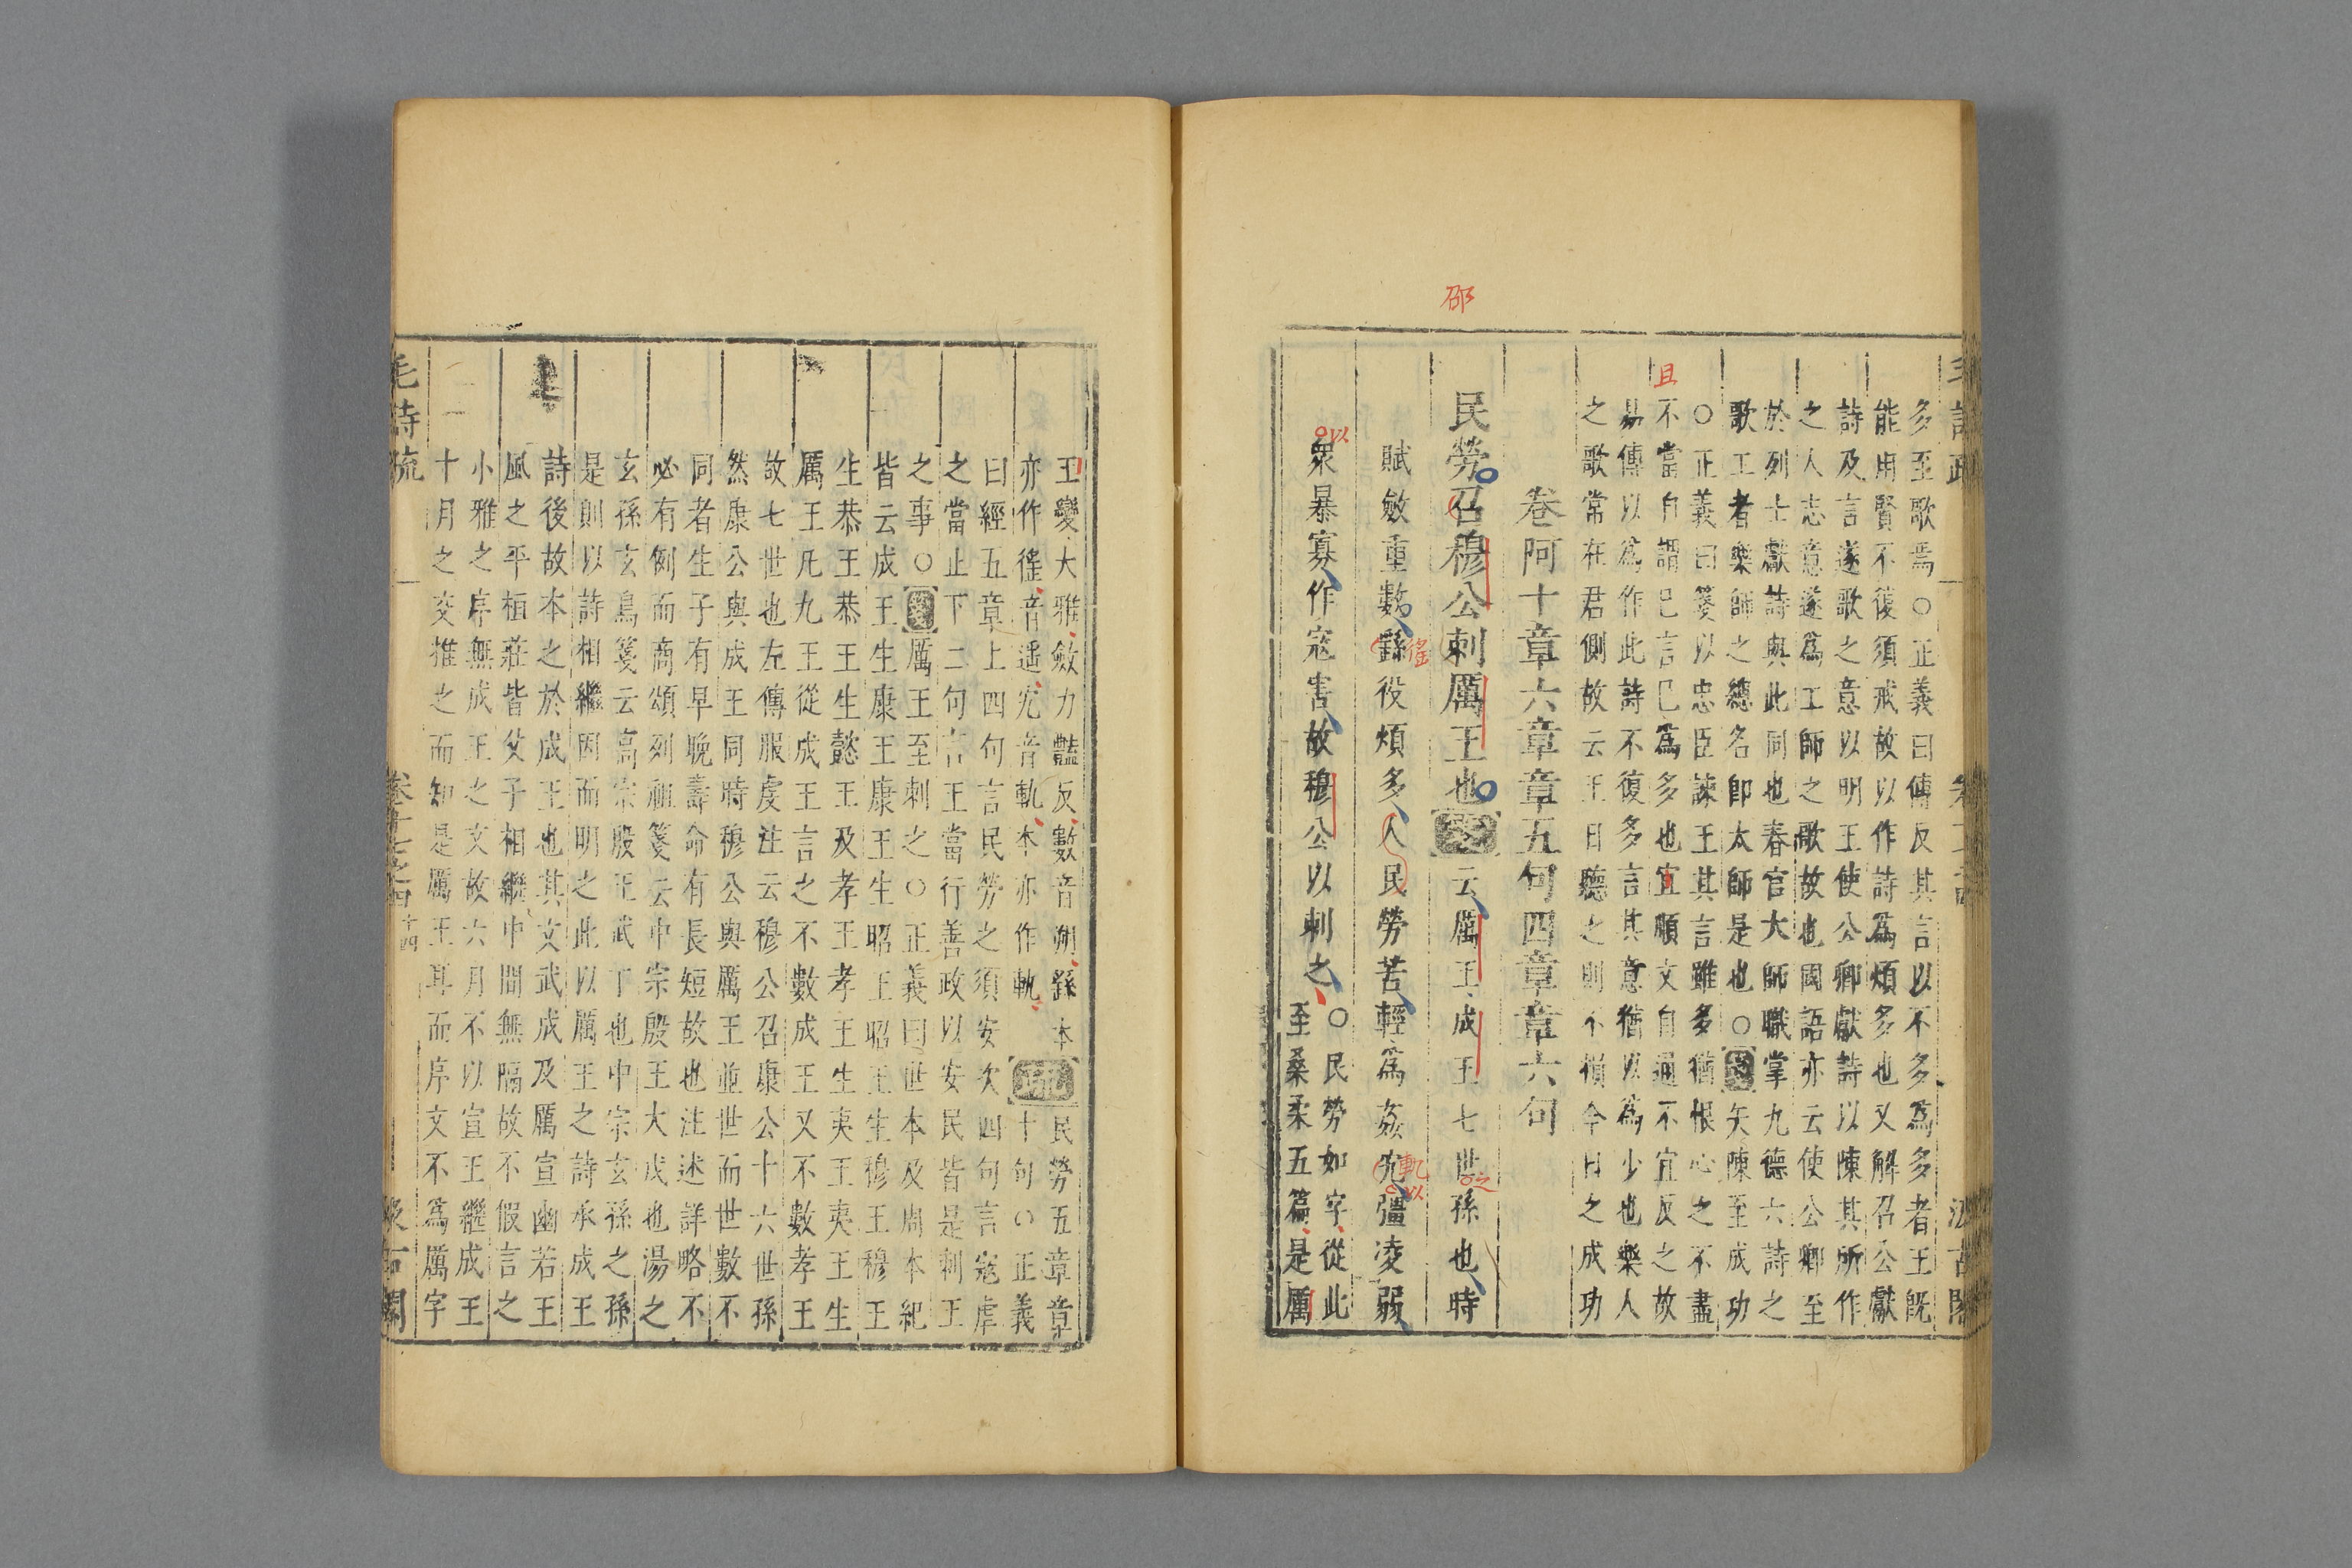 多至歌焉○正義曰傳反其言以不多爲多者王既
能用賢不復須戒故以作詩爲煩多也又解召公獻
詩及言遂歌之意以明王使公卿獻詩以陳其所作
之人志意遂爲工師之歌故也國語亦云使公卿至
於列士獻詩與此同也春官大師職掌九德六詩之
歌工者樂師之總名即太師是也○箋矢陳至成功
○正義曰箋以忠臣諫王其言雖多猶恨心之不盡
不當自謂已言已爲多也宜願文自通不宜反之故
易傳以爲作此詩不復多言其意猶以爲少也樂人
之歌常在君側故云王日聽之則不損今日之成功
卷阿十章六章章五句四章章六句
民勞召穆公刺厲王也箋云厲王成王七世孫也時
賦斂重數繇役煩多人民勞苦輕爲姦宄彊凌弱
眾暴寡作寇害故穆公以刺之○民勞如字從此
至桑柔五篇是厲
邵
且
徭
軌
以
之
以
王變大雅斂力豔反數音朔繇本
亦作徭音遥宄音軌本亦作軌疏民勞五章章
十句○正義
曰經五章上四句言民勞之須安次四句言寇虐
之當止下二句言王當行善政以安民皆是刺王
之事○箋厲王至刺之○正義曰世本及周本紀
皆云成王生康王康王生昭王昭王生穆王穆王
生恭王恭王生懿王及孝王孝王生夷王夷王生
厲王凡九王從成王言之不數成王又不數孝王
故七世也左傳服虔注云穆公召康公十六世孫
然康公與成王同時穆公與厲王並世而世數不
同者生子有早晚壽命有長短故也注述詳略不
必有例而商頌列祖箋云中宗殷王大戊也湯之
玄孫玄鳥箋云高宗殷王武丁也中宗玄孫之孫
是則以詩相繼因而明之此以厲王之詩承成王
詩後故本之於成王也其文武成及厲宣幽若王
風之平桓莊皆父子相繼中間無隔故不假言之
小雅之序無成王之文故六月不以宣王繼成王
十月之交推之而知是厲王耳而序文不爲厲字
毛詩疏
卷十七之四
十四
汲古閣